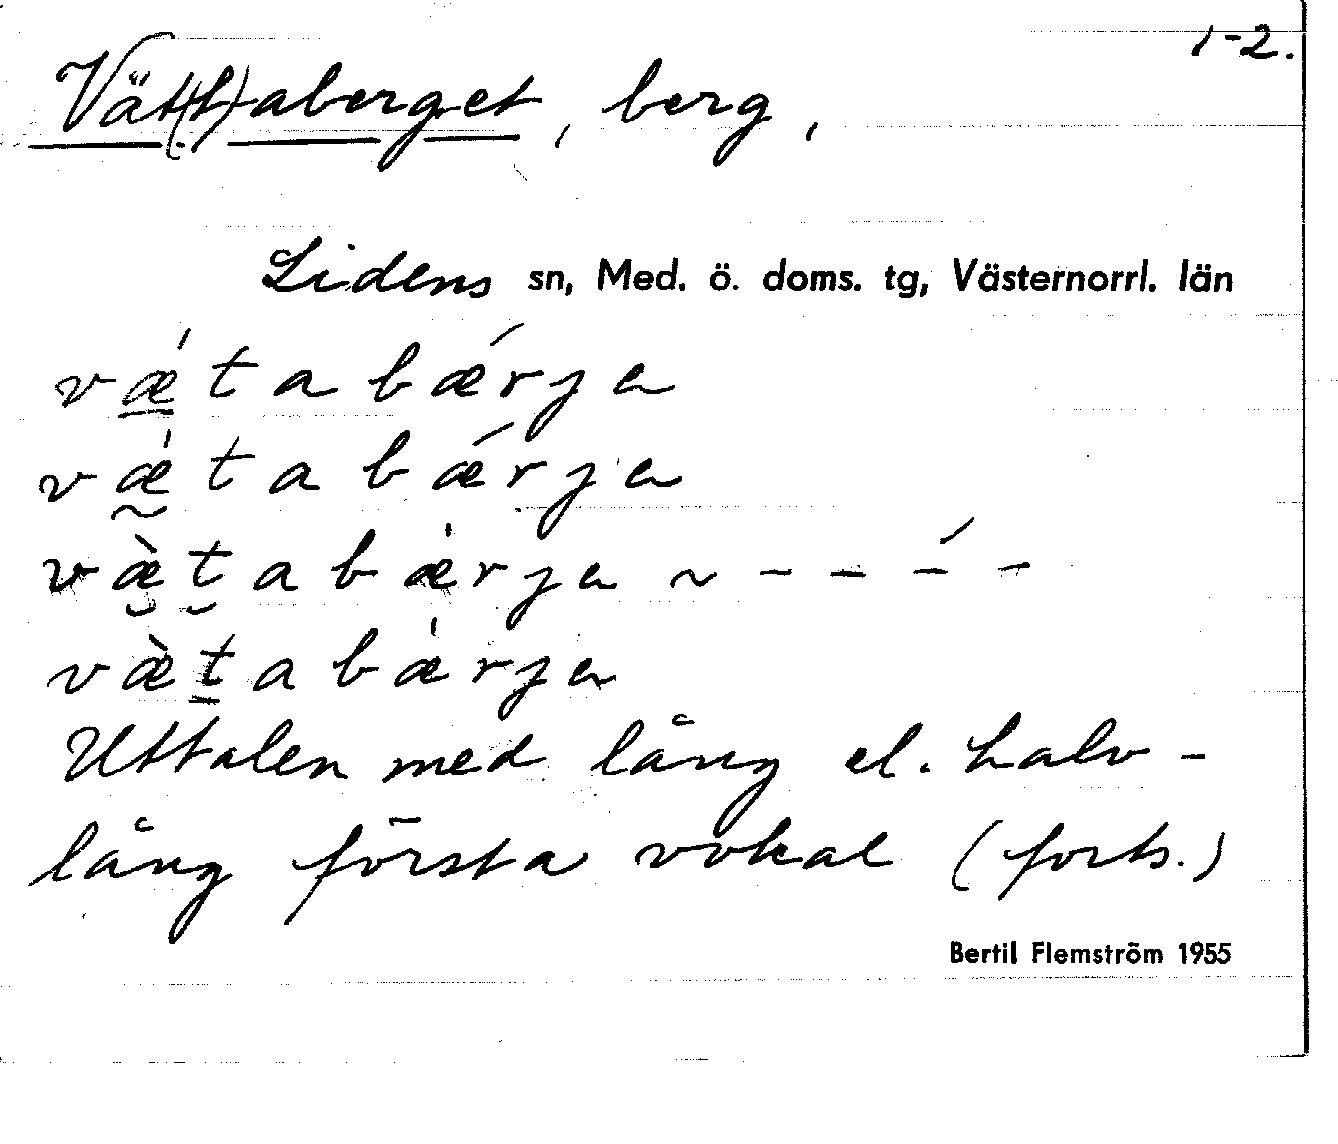 1-2.
Vät(t)aberget, berg,
Lidens sn, Med. ö. doms. tg, Västernorrl. län
vǽ̲tabǽrje
vǽ̰tabǽrje
væ̮̀t̮abæ̍rje ~ – – –́ –
væ̀t̲abæ̍rje
Uttalen med lång el. halv-
lång första vokal (forts.)
Bertil Flemström 1955